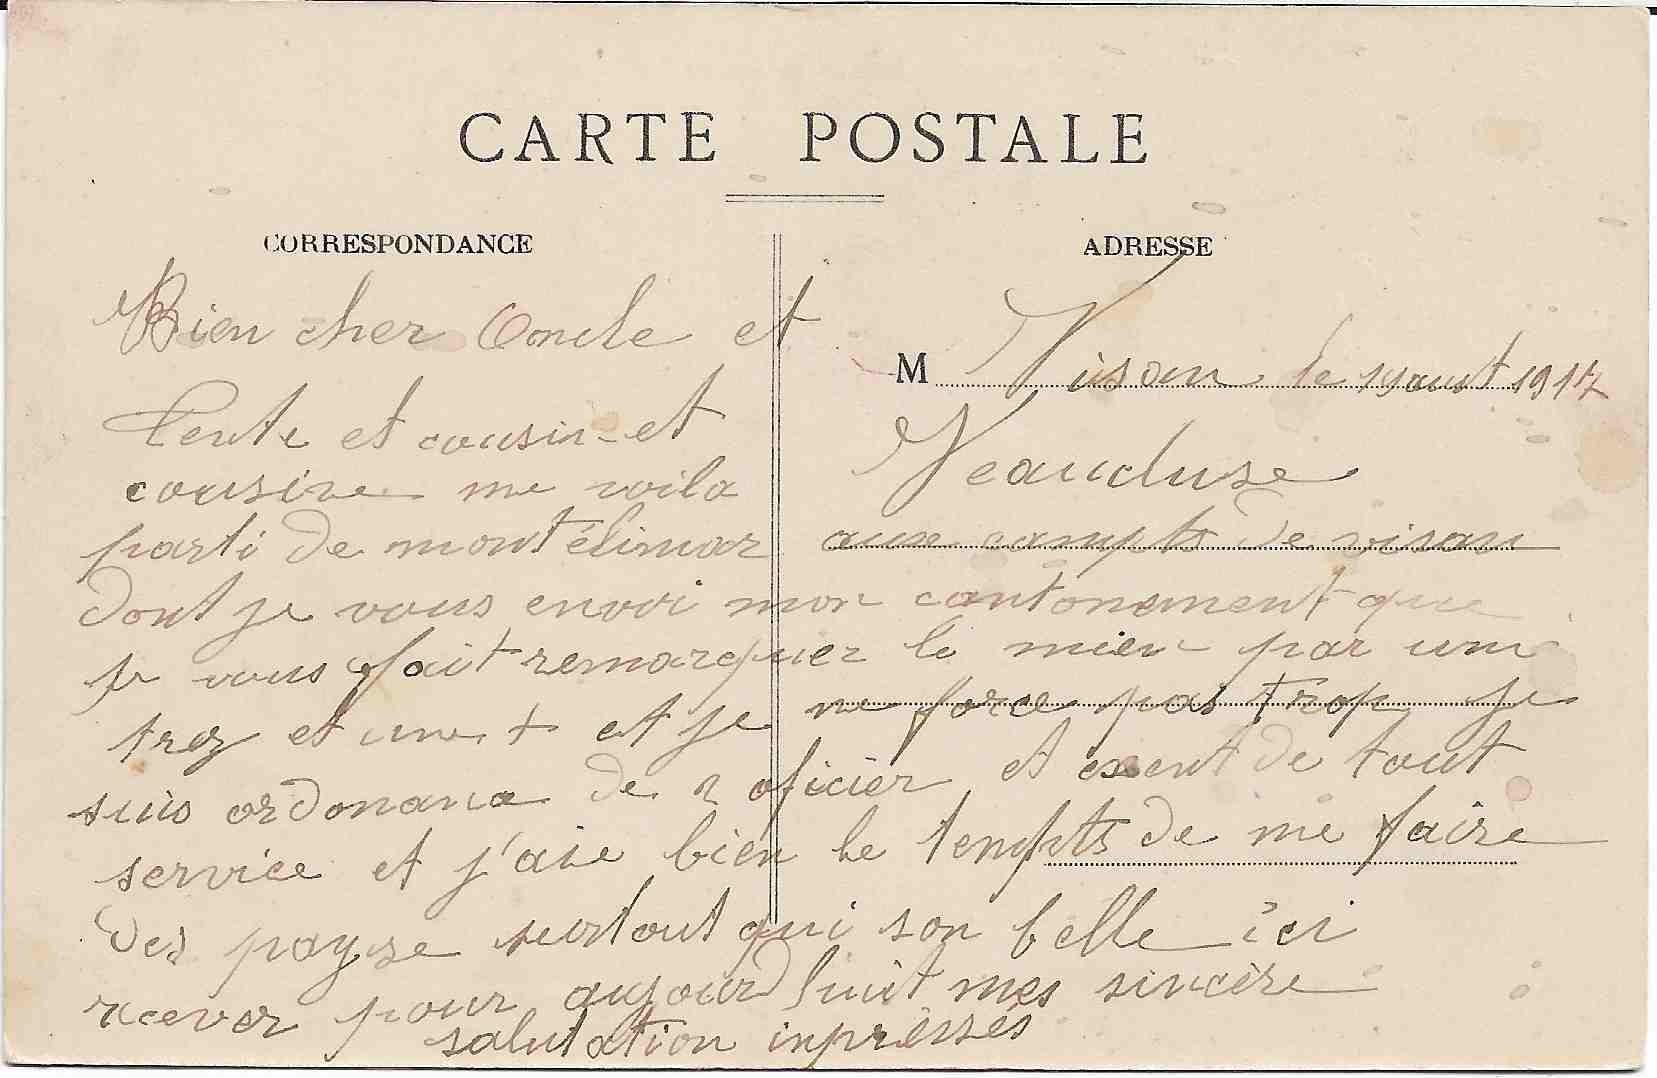 CARTE POSTALE
CORRESPONDANCE
ADRESSE
M Visan le 19 aout 1917
Veaucluse
Bien cher Oncle et
Tente et cousin et
cousine me voila
parti de montélimar aux campts de visan
dont je vous envoi mon cantonement que
je vous fait remarquer le mien par une
trez et une + et je ne force pas trop je
suis ordonana de 2 oficier et exent de tout
service et j'aie bien le tempts de me faire
des payse surtout qui son belle ici
rcever pour aujourd huit mes sincère
salutation inpressés